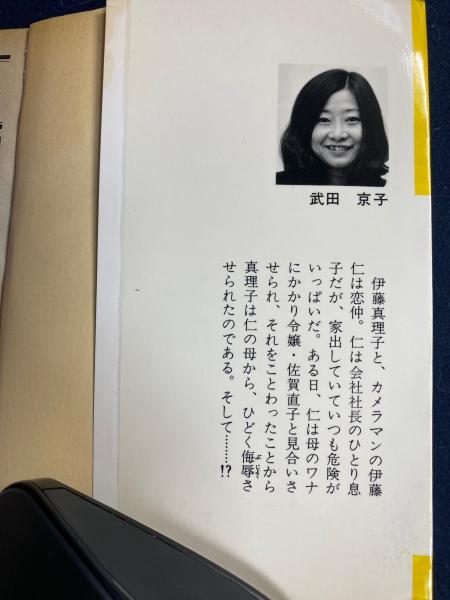 武田 京子
伊藤真理子と、カメラマンの伊藤
仁は恋仲。仁は会社社長のひとり息
子だが、家出していていつも危険が
いっぱいだ。ある日、仁は母のワナ
にかかり令嬢・佐賀直子と見合いさ
せられ、それをことわったことから
真理子は仁の母から、ひどく侮辱さ
せられたのである。そして………!?